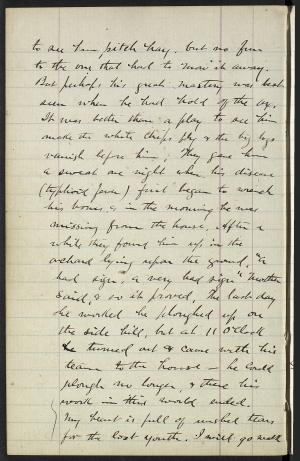 to see him pitch hay. but no fun
to the one that had to mow it away.
But perhaps his great mastery was best
seen when he had hold of the ax.
It was better than a play to see him
make the white chips fly & the big logs
vanish before him. They gave him
a sweat one night when his disease
(typhoid fever) first began to wrack
his bones, & in the morning he was
missing from the house. After a
while they found him up in the
orchard lying upon the ground, "a
bad sign, a very bad sign" Mother
said, & so it proved. The last day
he worked he ploughed up on
the side hill, but at 11 O'Clock
he turned out & came with his
team to the house — he could
plough no longer, & there his
work in this world ended.
My heart is full of unshed tears
for the lost youth. I will go and